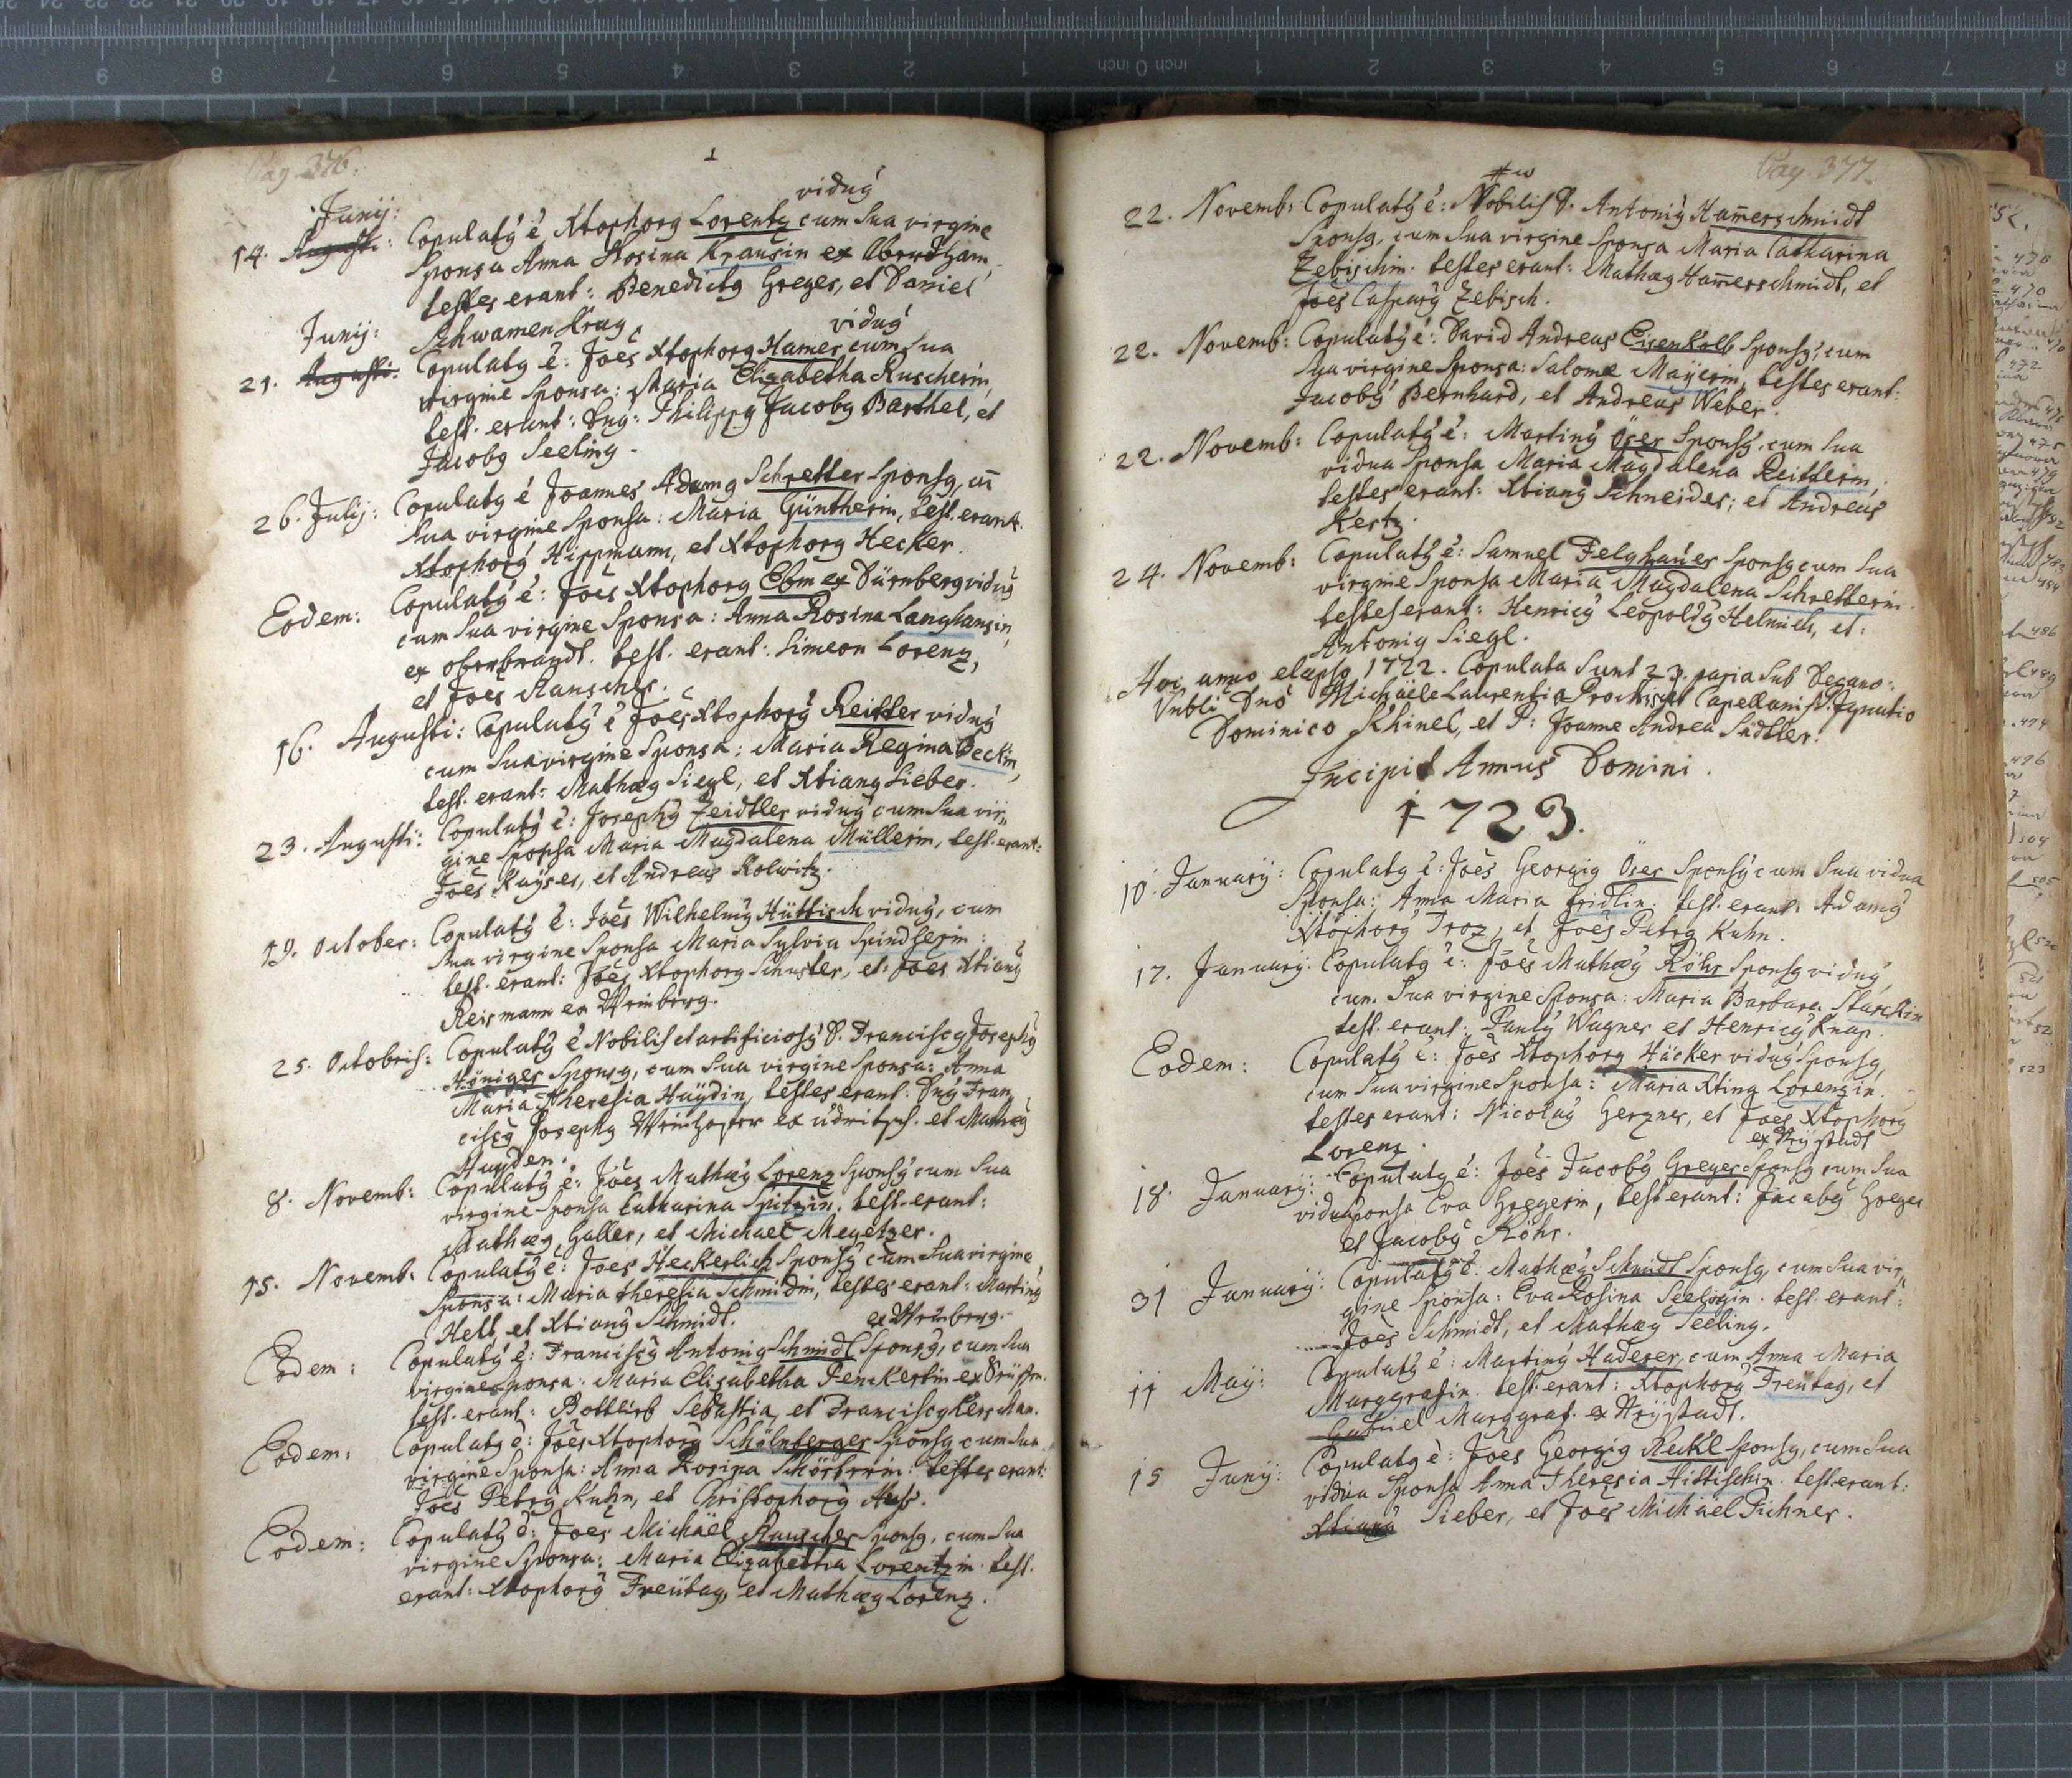 Pag. 376.
Junij:
viduý
14. Augusti: Copulatý ẽ Xtophorý Lorentz cum Sua virgine
Sponsa Anna Rosina Krausin ex
testes erant: Benedictý Greger, et Daniel
SchwamenKrug.
Junij:
viduý
21. Augusti: Copulatý ẽ: Joẽs Xtophorý Hamer cum Sua
virgine Sponsa: Maria Elizabetha Ruscherin,
test. erant: Dný: Philippý Jacobý Barthel, et
Jacobý Seeling.
26. Julij: Copulatý ẽ Joannes Adamý Schretter Sponsý, cũ
Sua virgine Sponsa: Maria Güntherin, test. erant.
Xtophorý Hippmann, et Xtophorý Hecker.
Eodem: Copulatý ẽ: Joẽs Xtophorý Ebm ex Dürnberg viduý
cum Sua virgine Sponsa: Anna Rosina Langhansin,
ex oberbrandt. test. erant: Simeon Lorenz,
et Joẽs Rauscher.
16. Augusti: Copulatý ẽ Joẽs Xtophorý Reitter viduý
cum Sua virgine Sponsa: Maria Regina Beckin,
test. erant: Mathæý Siegl, et Xtianý Sieber.
23. Augusti: Copulatý ẽ: Josephý Zeidtler viduý cum Sua vir,,
gine Sponsa Maria Magdalena Müllerin, test. erant:
Joẽs Kaÿser, et Andreas Kolwitz.
19. October: Copulatý ẽ: Joẽs Wilhelmý Hüttisch viduý, cum
Sua virgine Sponsa Maria Sylvia Spindlerin:
test. erant: Joẽs Xtophorý Schuster, et Joẽs Xtianý
Reismann ex Weinberg.
25. Octobris: Copulatý ẽ Nobilis et artificiosý D. Franciscý Josephý
Höniger Sponsý, cum Sua virgine Sponsa: Anna
Maria Theresia Haÿdin, testes erant: Dný Fran
ciscý Josephý et Mathæý
Haÿden.
8. Novemb: Copulatý ẽ: Joẽs Mathæý Lorenz Sponsý cum Sua
virgine Sponsa Catharina Spitzin. test. erant:
Mathæý Galler, et Michael Megetzer.
15. Novemb: Copulatý ẽ: Joes Heckerlich Sponsý cum Sua virgine
Sponsa: Maria Theresia Schmidin, testes erant: Martiný
Hell, et Xtianý Schmidt.
ex Weinberg.
Eodem: Copulatý ẽ: Franciscý Antoniý Schmidl Sponsý, cum Sua
virgine Sponsa: Maria Elisabetha Penckertin
test. erant: Gottlieb Sebastia, et Franciscý
Eodem: Copulatý ẽ: Joẽs Xtophorý Schölnberger Sponsý cum Sua
virgine Sponsa: Anna Rosina testes erant:
Joẽs Petrý Kuhn, et Christophorý
Eodem: Copulatý ẽ: Joẽs Michäel Rauscher Sponsý, cum Sua
virgine Sponsa: Maria Elizabetha Lorentzin. test.
erant: Xtophorý Freütag, et Mathæý Lorenz.
Pag. 377.
22. Novemb: Copulatý ẽ: Nobilis D. Antoniý Ham̃erschmidt
Sponsý, cum Sua virgine Sponsa Maria Catharina
Zebischin. testes erant: Mathæý Ham̃erschmidt, et
Joẽs Casparý Zebisch.
22. Novemb: Copulatý ẽ: David Andreas Eisenkolb Sponsý, cum
Sua virgine Sponsa: Salome Maÿerin, testes erant:
Jacobý Bernhard, et Andreas Weber.
22. Novemb: Copulatý ẽ: Martiný Öser Sponsý, cum Sua
vidua Sponsa Maria Magdalena Reitterin,
testes erant: Xtianý Schneider; et Andreas
Kertz.
24. Novemb: Copulatý ẽ: Samuel Felghauer Sponsý cum Sua
virgine Sponsa Maria Magdalena Schretterin.
testes erant: Henricý Leopoldý Helmich, et:
Antoniý Siegl.
Hoc anno elapso 1722. Copulata Sunt 23. paria Sub Decano:
Michäele Laurentio Capellanis P. Ignatio
Dominico Khinel, et P: Joanne Andrea Sädtler.
Incipit Annus Domini.
1723.
10. Januarý: Copulatý ẽ: Joẽs Georgiý Öser Sponsý cum Sua vidua
Sponsa: Anna Maria Fridlin. test. erant: Adamý
Xtophorý Troz, et Joẽs Petrý Kuhn.
17. Januarý: Copulatý ẽ: Joẽs Mathæý Röhr Sponsý viduý,
cum Sua virgine Sponsa: Maria Barbara Starckin
test. erant: Paulý Wagner et Henricý Knap.
Eodem: Copulatý ẽ: Joẽs Xtophorý Häcker viduý Sponsý,
cum Sua virgine Sponsa: Maria Xtina Lorenzin.
testes erant: Nicolaý Herzner, et Joẽs Xtophorý
Lorenz.
18. Januarý: Copulatý ẽ: Joẽs Jacobý Greger Sponsý cum Sua
vidua Sponsa Eva Gregerin, test. erant: Jacobý Greger
et Jacobý Röhr.
31 Januarý: Copulatý ẽ: Mathæý Schmidt Sponsý, cum Sua vir,,
gine Sponsa: Eva Rosina Seeligin. test. erant:
Joẽs Schmidt, et Mathæý Seeling.
11 Maý: Copulatý ẽ: Martiný Haderer, cum Anna Maria
Marggrafin. test. erant: Xtophorý Freütag, et
Gabriel Marggraf.
15 Junij: Copulatý ẽ: Joẽs Georgiý Reckl Sponsý, cum Sua
vidua Sponsa Anna Theresia Hittischin. test. erant:
Xtianý Sieber, et Joẽs Michäel Pichner.